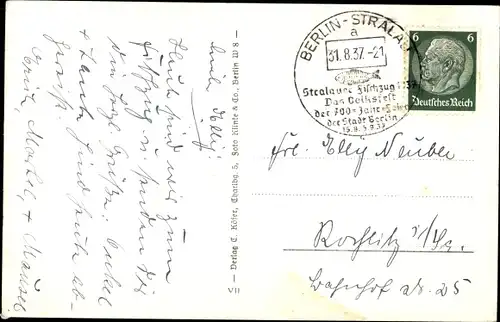 Liebe Elly!
Heute sind wir zum
Fischzug u. senden Dir
die herzl. Grüße. Onkel
+ Tante sind heute ab-
Erich, Martel, + Mausel
Verlag C. Köfer, Charlbg. 5, Foto Klinke & Co., Berlin W 8 —
VII
BERLIN-STRALAU
a
31.8.37.-21
Stralauer Fischzug 1937
Das Volksfest
der 700-Jahr-Feier
der Stadt Berlin
6
6
Deutsches Reich
Frl. Elly Neuber
Rochlitz i/Sa.
Bahnhofstr. 25